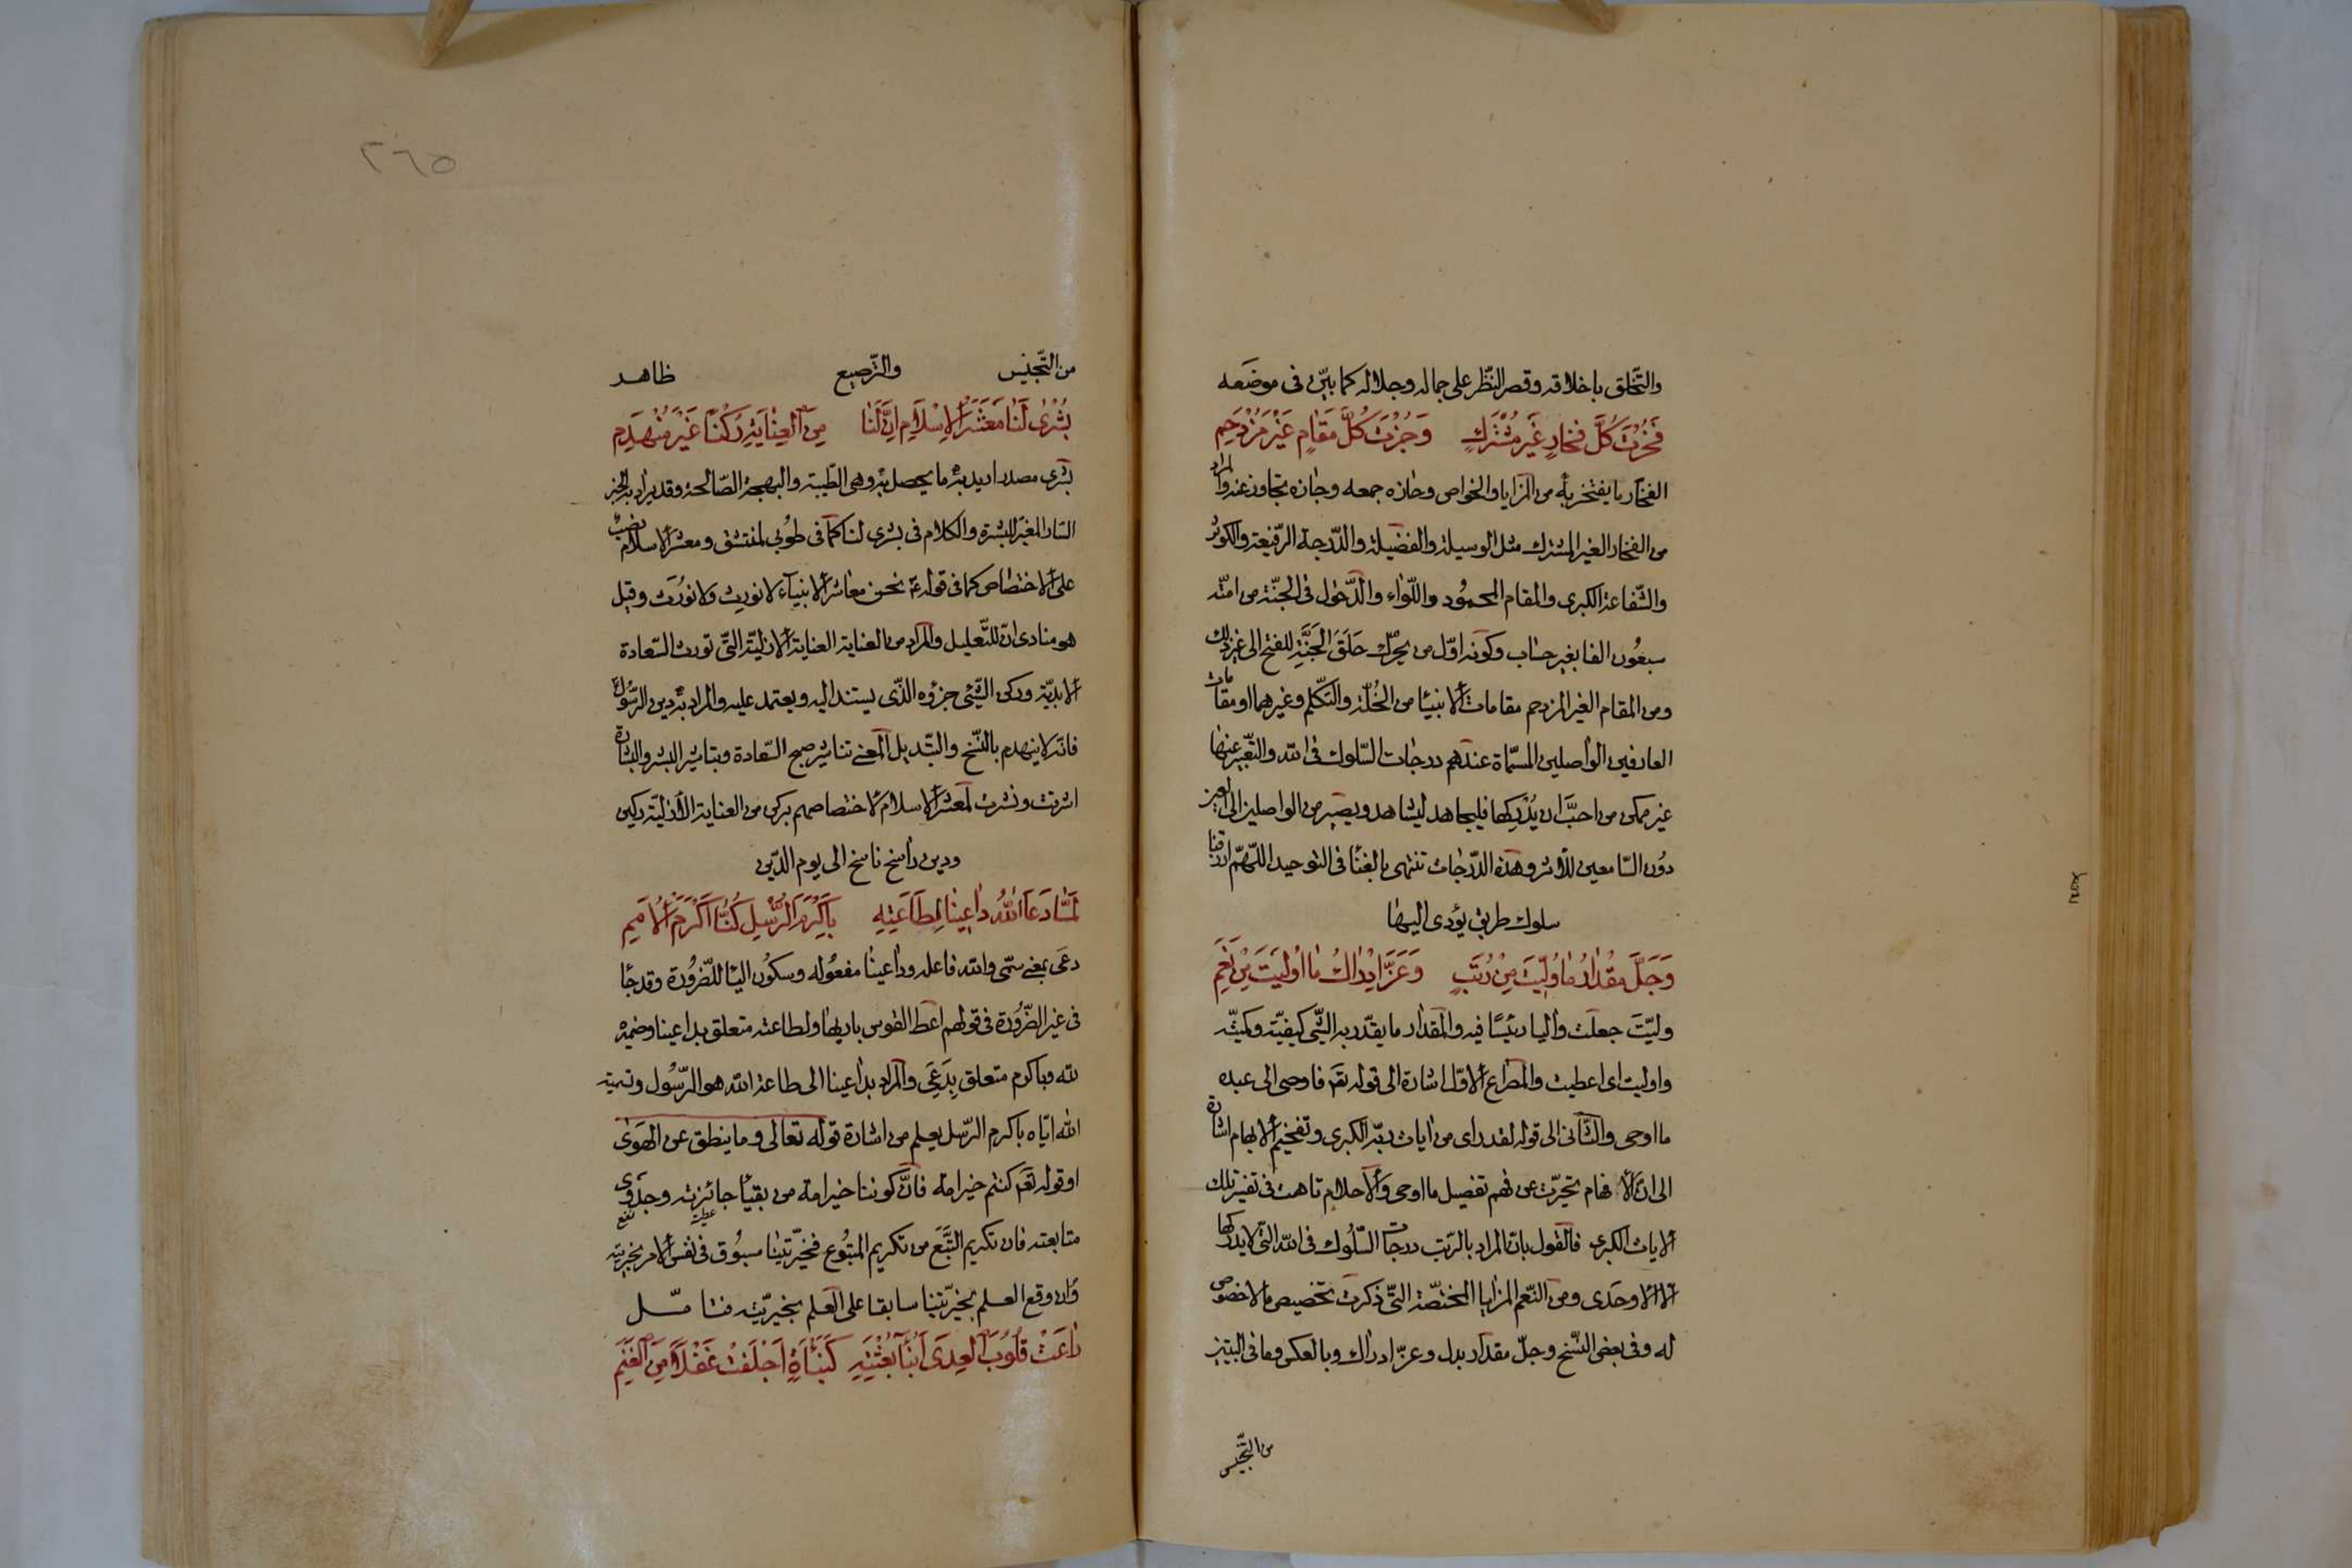 والتّخلّق باخلاقه وقصر النّظر على جماله وجلاله كما بيّن فى موضعه
فَحُزْتَ كُلَّ فَخَارٍ غَيْرَ مُشْتَرَكٍ وَجُزْتَ كُلَّ مَقَامٍ غَيْرَ مُزْدَحِمِ
الفخار ما يفتخر به من المزايا والخواص وحازه جمعه وجازه تجاوز عنه والمراد
من الفخار الغير المشترك مثل الوسيلة والفضيلة والدّرجة الرّفيعة والكوثر
والشّفاعة الكبرى والمقام المحمود واللّواء والدّخول فى الجنّة من امّته
سبعون الفا بغير حساب وكونه اوّل من يحرّك حَلَقَ الجَنَّةِ للفتح الى غير ذلك
ومن المقام الغير المزدحم مقامات الانبيا من الخُلّة والتّكلّم وغيرهما او مقامات
العارفين الواصلين المسمّاة عندهم درجات السّلوك فى الله والتّعبير عنها
غير ممكن من احبَّ ان يُدْرِكها فليجاهد ليشاهد ويصير من الواصلين الى العين
دون السّامعين للاثر وهذه الدّرجات تنتهى بالفنا فى التوحيد اللّهمّ ارزقنا
سلوك طريق يؤدى اليها
وَجَلَّ مِقْدَارُ مَا وُلِّيْتَ مِنْ رُتَبٍ وَعَزَّ اِدْرَاكُ مَا اُولِيْتَ مِنْ نِعَمِ
وليّتَ جعلت واليا رئيسًا فيه والمقدار ما يقدّر به الشّئ كيفيّته وكميّته
واوليت اى اعطيت والمصراع الاوّل اشارة الى قوله تعَ فاوحى الى عبده
ما اوحى والثّانى الى قوله لقد راى من ايات ربّه الكبرى وتفخيم الابهام اشارة
الى انّ الافهام تحيّرت عن فهم تفصيل ما اوحى والاحلام تاهت فى تفسير تلك
الايات الكبرى فالقول بانّ المراد بالرّتب درجات السّلوك فى الله التى لا يدركها
الا الاوحَدى ومن النّعم المزايا المختصّة التّى ذكرت تخصيص ما لا خصوص
له وفى بعض النّسخ وجلّ مقدار بدل وعزّ ادراك وبالعكس وما فى البيتين
من التّجنيس
٢٦٥
من التّجنيس والتّرصيع ظاهر
بُشْرٰى لَنَا مَعْشَرَ الْاِسْلَامِ اِنَّ لَنَا مِنَ الْعِنَايَةِ رُكْنًا غَيْرَ مُنْهَدِمِ
بشرى مصدر اريد به ما يحصل به وهى الطّيبة والبهجة الصّالحة وقد يراد به الخبر
السّار المغيّر للبشرة والكلام فى بشرى لنا كما فى طوبى لمنتشق ومعشر الاسلام نصب
على الاختصاص كما فى قوله ع نحن معاشر الانبيآء لا نورِث ولا نورَث وقيل
هو منادى انّ للتّعليل والمراد من العناية العناية الازليّة التّى تورث السّعادة
الابديّة وركن الشّئ جزؤه الذّى يستند اليه ويعتمد عليه والمراد به دين الرّسول
فانّه لا ينهدم بالنّسخ والتّبديل المعنى تباشير صبح السّعادة وبتاشير البشر والبشارة
اشرقت ونشرت لمعشر الاسلام لاختصاصهم بركن من العناية الازليّة ركين
ودين راسخ ناسخ الى يوم الدّين
لَمَّا دَعَا اللهُ دَاعِيْنَا لِطَاعَتِهِ بِاَكْرَمِ الرُّسْلِ كُنَّا اَكْرَمَ الْاُمَمِ
دعَى بمعنى سمّى والله فاعله وداعينا مفعوله وسكون اليا للضّرورة وقد جاء
فى غير الضّرورة فى قولهم اعط القوس باريها ولطاعته متعلق بداعينا وضميره
لله وباكرم متعلق بِدَعَى والمراد بداعينا الى طاعة الله هو الرّسول وتسمية
الله ايّاه باكرم الرّسل يعلم من اشارة قوله تعالى وما ينطق عن الهَوٰى
او قوله تعَ كنتم خير امة فانّ كوننا خير امة من بقيّا جائزته وجدوى
عطية نفع
متابعته فان تكريم التَّبَع من تكريم المتبوع فخيّرتينا مسبوق فى نفس الامر بخيريته
وان وقع العلم بخيريّتنا سابقا على العلم بخيريّته فتامّل
رَاعَتْ قُلُوبَ الْعِدَى اَنْبَآءُ بَعْثَتِهِ كَنَبْاَةٍ اَجْفَلَتْ غُفْلًا مِنَ الْغَنَمِ